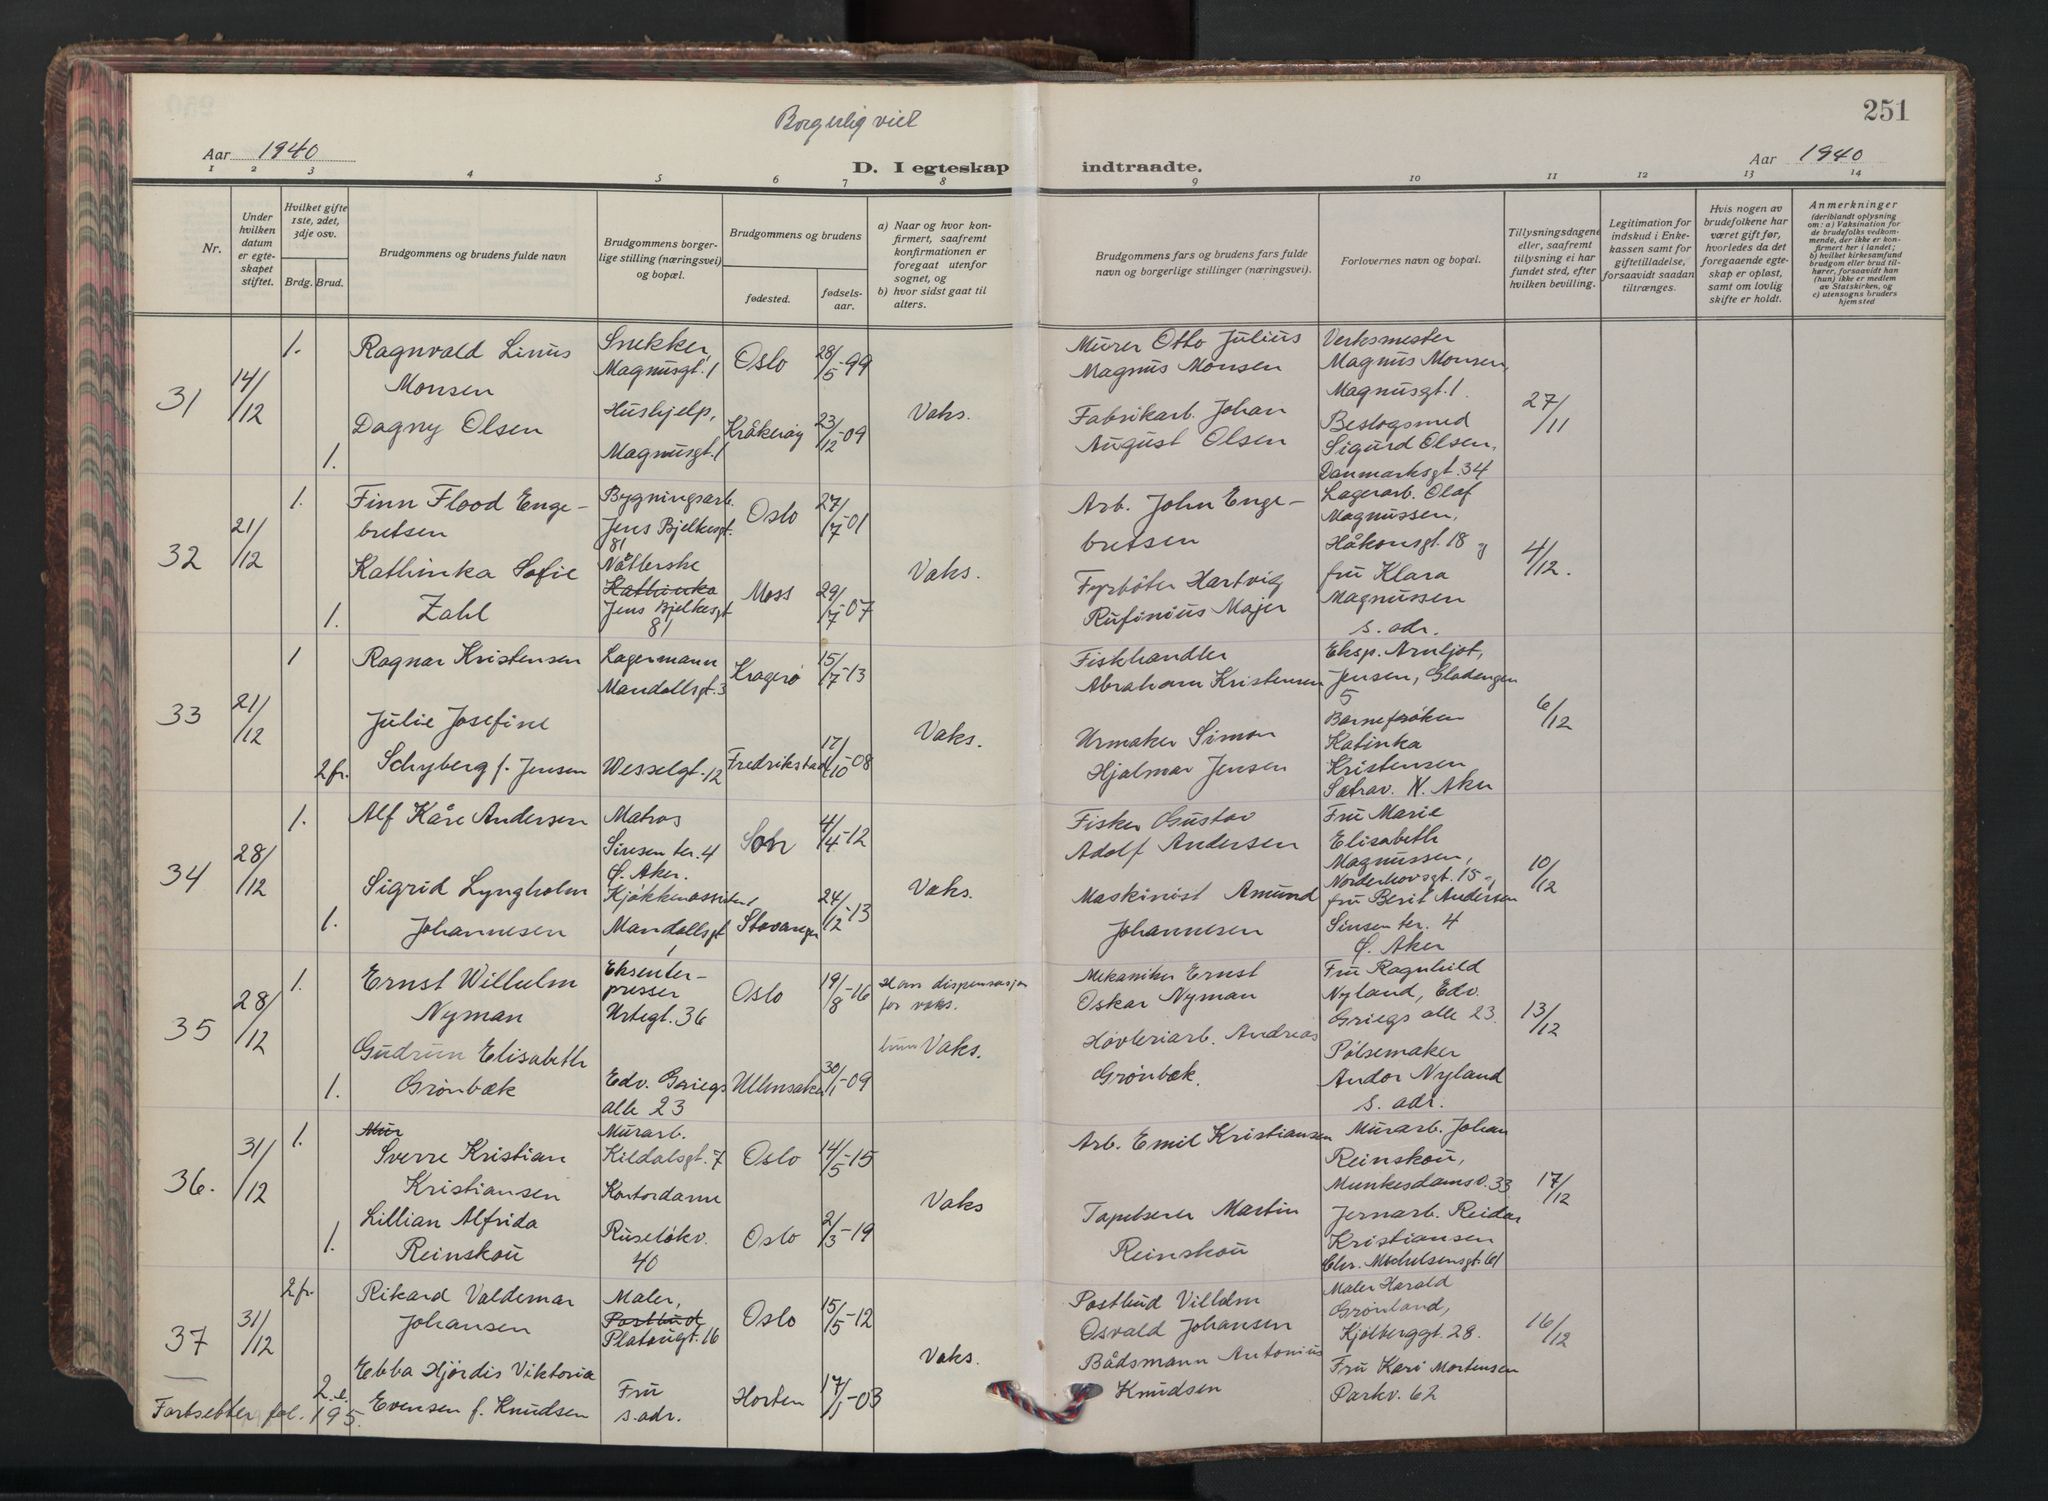 Borgerlig viet
251
Aar 1940
D. I egteskap indtraadte.
Aar 1940
1 2 3 4 5 6 7 8 9 10 11 12 13 14
Nr.
Under hvilken datum er egteskapet stiftet.
Hvilket gifte 1ste, 2det, 3dje osv.
Brdg. Brud.
Brudgommens og brudens fulde navn
Brudgommens borgerlige stilling (næringsvei) og bopæl.
Brudgommens og brudens
fødested.
fødselsaar.
a) Naar og hvor konfirmert, saafremt konfirmationen er foregaat utenfor sognet, og
b) hvor sidst gaat til alters.
Brudgommens fars og brudens fars fulde navn og borgerlige stillinger (næringsvei).
Forlovernes navn og bopæl.
Tillysningsdagene eller, saafremt tillysning ei har fundet sted, efter hvilken bevilling.
Legitimation for indskud i Enkekassen samt for giftetilladelse, forsaavidt saadan tiltrænges.
Hvis nogen av brudefolkene har været gift før, hvorledes da det foregaaende egteskap er opløst, samt om lovlig skifte er holdt.
Anmerkninger
(deriblandt oplysning om: a) Vaksination for de brudefolks vedkommende, der ikke er konfirmert her i landet; b) hvilket kirkesamfund brudgom eller brud tilhører, forsaavidt han (hun) ikke er medlem av Statskirken, og c) utensogns bruders hjemsted
31
14/12
1.
Ragnvald Linus
Monsen
Snekker,
Magnusgt. 1
Oslo
28/5-99
Murer Otto Julius
Magnus Monsen
Verksmester
Magnus Monsen,
Magnusgt. 1.
27/11
1.
Dagny Olsen
Hushjelp,
Magnusgt. 1
Kråkerøy
23/12-09
Vaks.
Fabrikarb. Johan
August Olsen
Beslagsmed
Sigurd Olsen,
Danmarksgt. 34
32
21/12
1.
Finn Flood Enge-
bretsen
Bygningsarb.
Jens Bjelkesgt.
81
Oslo
27/7-01
Arb. John Enge-
bretsen
Lagerarb. Olaf
Magnussen,
Håkonsgt. 18 og
4/12.
1.
Kathinka Sofie
Zahl
Nåtlerske
Kathinka
Jens Bjelkesgt
81
Moss
29/7-07
Vaks.
Fyrbøter Hartvig
Rufinius Majer
fru Klara
Magnussen
s. adr.
33
21/12
1
Ragnar Kristensen
Lagermann
Mandallsgt. 3
Kragerø
15/7-13
Fiskhandler
Abraham Kristensen
Eksp. Arnljot,
Jensen, Gladengen
5
6/12
2 fr.
Julie Josefine
Schyberg f. Jensen
Wesselgt. 12
Fredrikstad
17/10-08
Vaks.
Urmaker Simon
Hjalmar Jensen
Barnefrøken
Katinka
Kristensen
Sætrav. N. Aker
34
28/12
1.
Alf Kåre Andersen
Matros
Sinsen ter. 4
Ø. Aker.
Son
4/4-12
Fisker Gustav
Adolf Andersen
Fru Marie
Elisabeth
Magnussen,
Norderhovsgt. 15
10/12
1.
Sigrid Lyngholm
Johannesen
Kjøkkenassistent
Mandallsgt
1
Stavanger
24/12-13
Vaks.
Maskinist Amund
Johannesen
fru Berit Andersen
Sinsen ter. 4
Ø. Aker
35
28/12
1.
Ernst Wilhelm
Nyman
Eksenter-
presser
Urtegt. 36
Oslo
19/8-16
Ham dispensasjon
for vaks.
Mekaniker Ernst
Oskar Nyman
Fru Ragnhild
Nyland, Edv.
Griegs alle 23.
13/12
1.
Gudrun Elisabeth
Grønbæk
Edv. Griegs
alle 23
Ullensaker
30/1-09
Vaks.
Høvleriarb. Andreas
Grønbæk.
Pølsemaker
Andor Nyland
s. adr.
36.
31/12
1.
Mur
Sverre Kristian
Kristiansen
Murarb.
Kildalsgt. 7
Oslo
14/5-15
Arb. Emil Kristiansen
Murarb. Johan
Reinskou,
Munkedamsv. 33
17/12
1.
Lillian Alfrida
Reinskou
Kontordame
Ruseløkv.
40
Oslo
2/3-19
Vaks
Tapetserer Martin
Reinskou
Jernarb. Reidar
Kristiansen
Chr. Michelsensgt. 61
37
31/12
2 fr.
Rikard Valdemar
Johansen
Maler,
Postbud
Platougt. 16
Oslo
15/5-12
Postbud Villelm
Osvald Johansen
Maler Harald
Grønland,
Kjølberggt. 28.
16/12
2. e.
Ebba Hjördis Viktoria
Evensen f. Knudsen
Fru
s. adr.
Horten
17/1-03
Vaks.
Bådsmann Antonius
Knudsen
Fru Kari Mortensen
Parkv. 62
Fortsetter fol. 195.